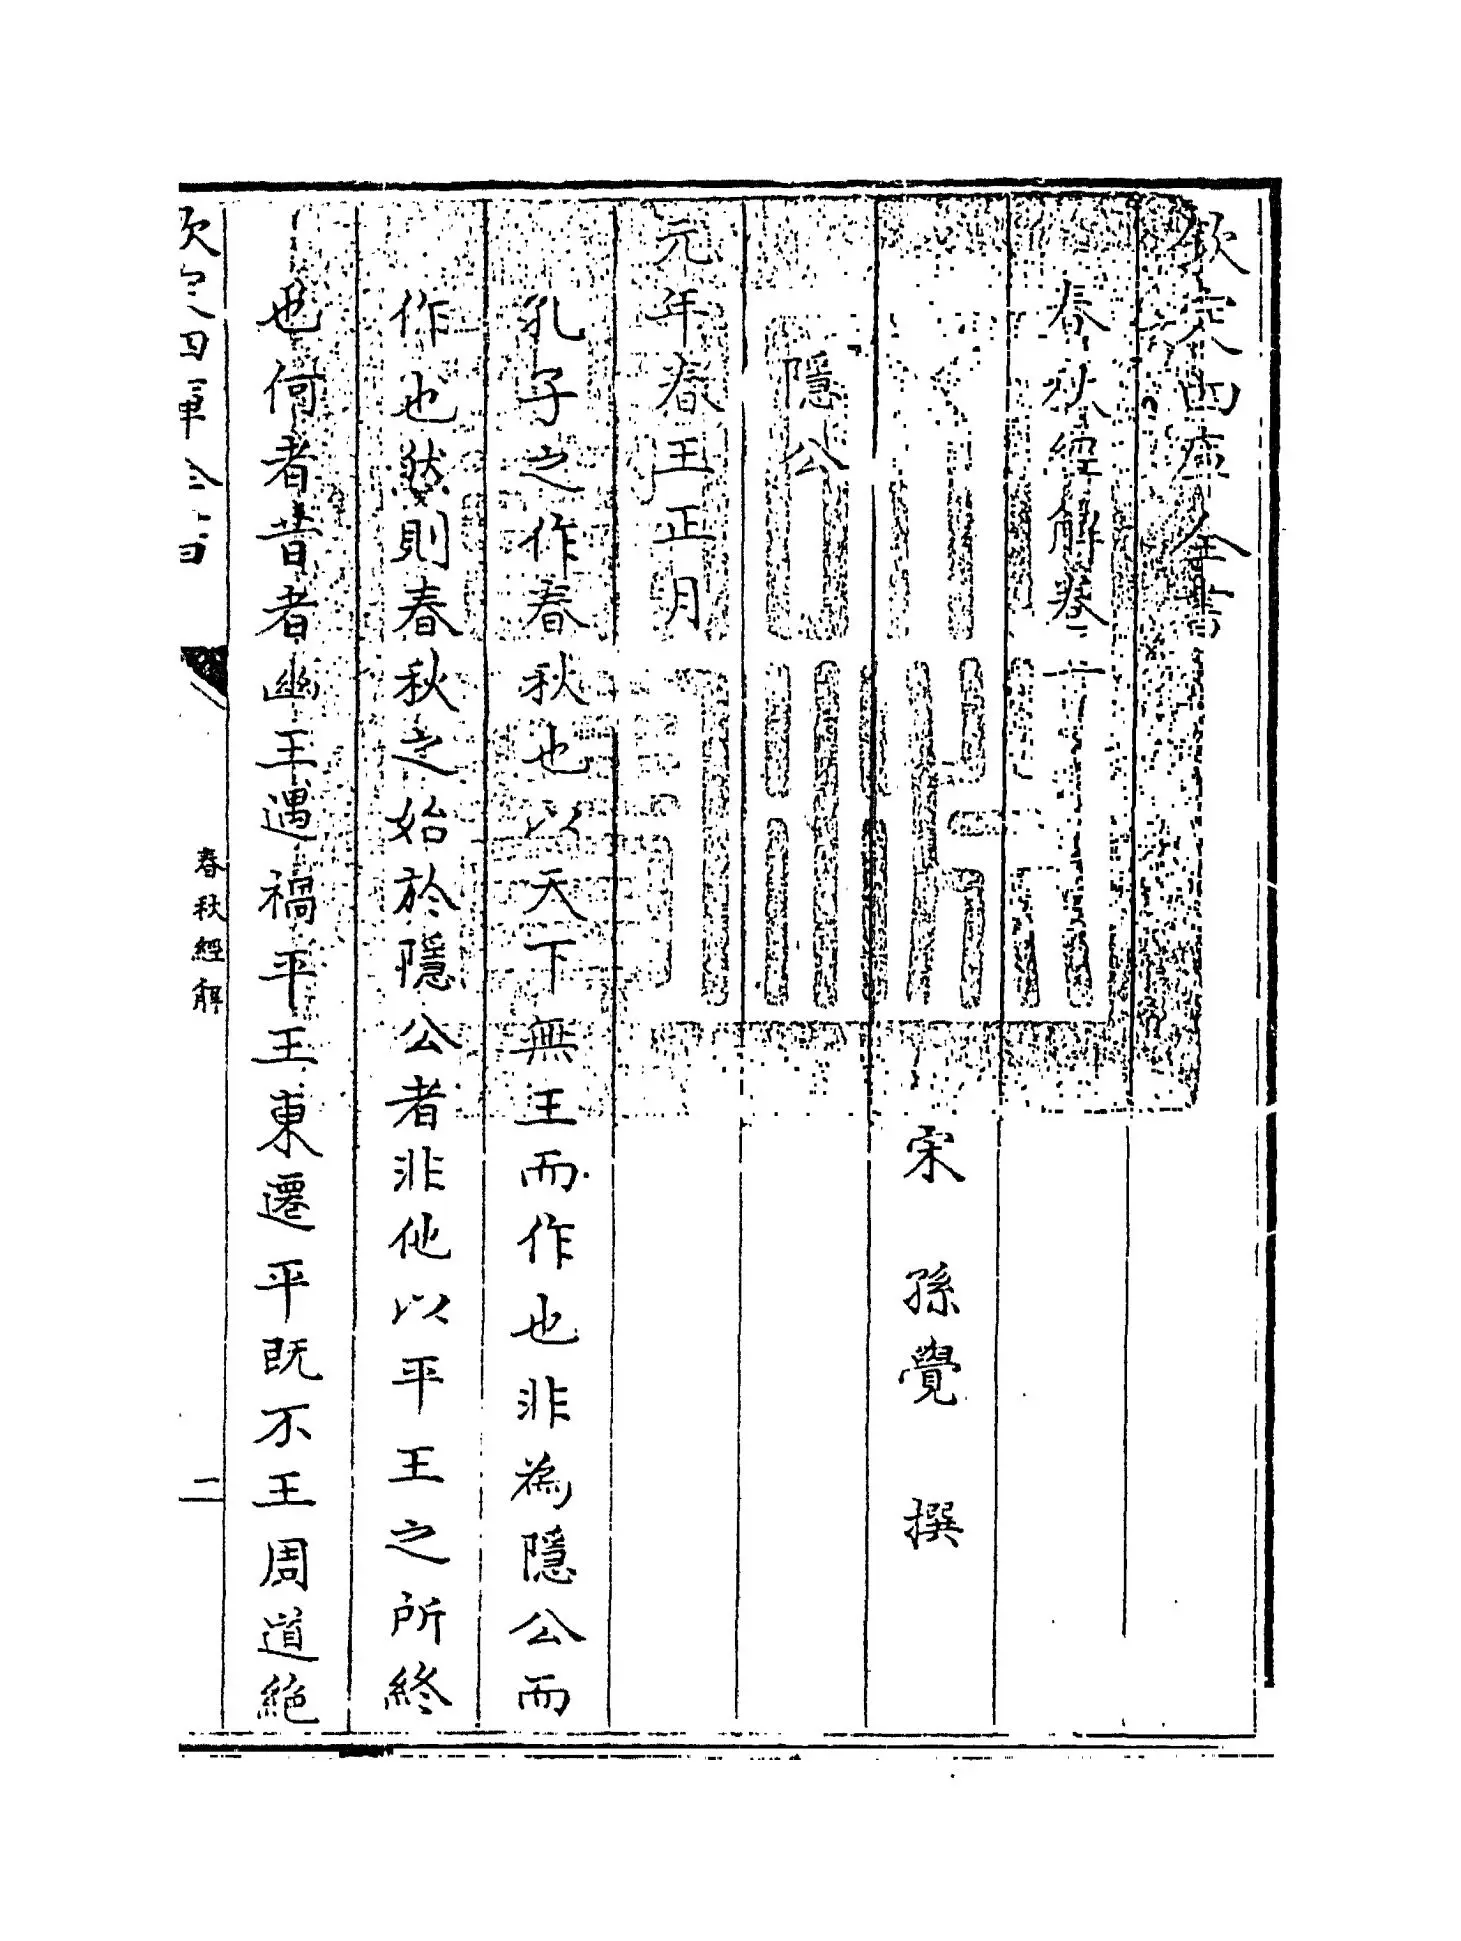 欽定四庫全書
春秋經解卷一
宋 孫覺 撰
隱公
元年春王正月
孔子之作春秋也以天下無王而作也非為隱公而
作也然則春秋之始於隱公者非他以平王之所終
也何者昔者幽王遇禍平王東遷平既不王周道絶
欽定四庫全書
春秋經解